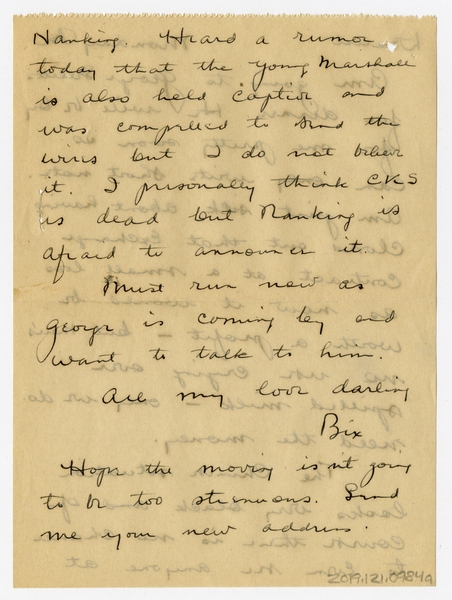 Nanking. Heard a rumor
today that the young Marshall
is also held captive and
was compelled to send the
wires but I do not believe
it. I personally think CKS
is dead but Nanking is
afraid to announce it.
Must run now as
George is coming by and
want to talk to him.
All my love darling
Bix
Hope the moving isn't going
to be too strenuous. Send
me your new address.
2019.121.0984a